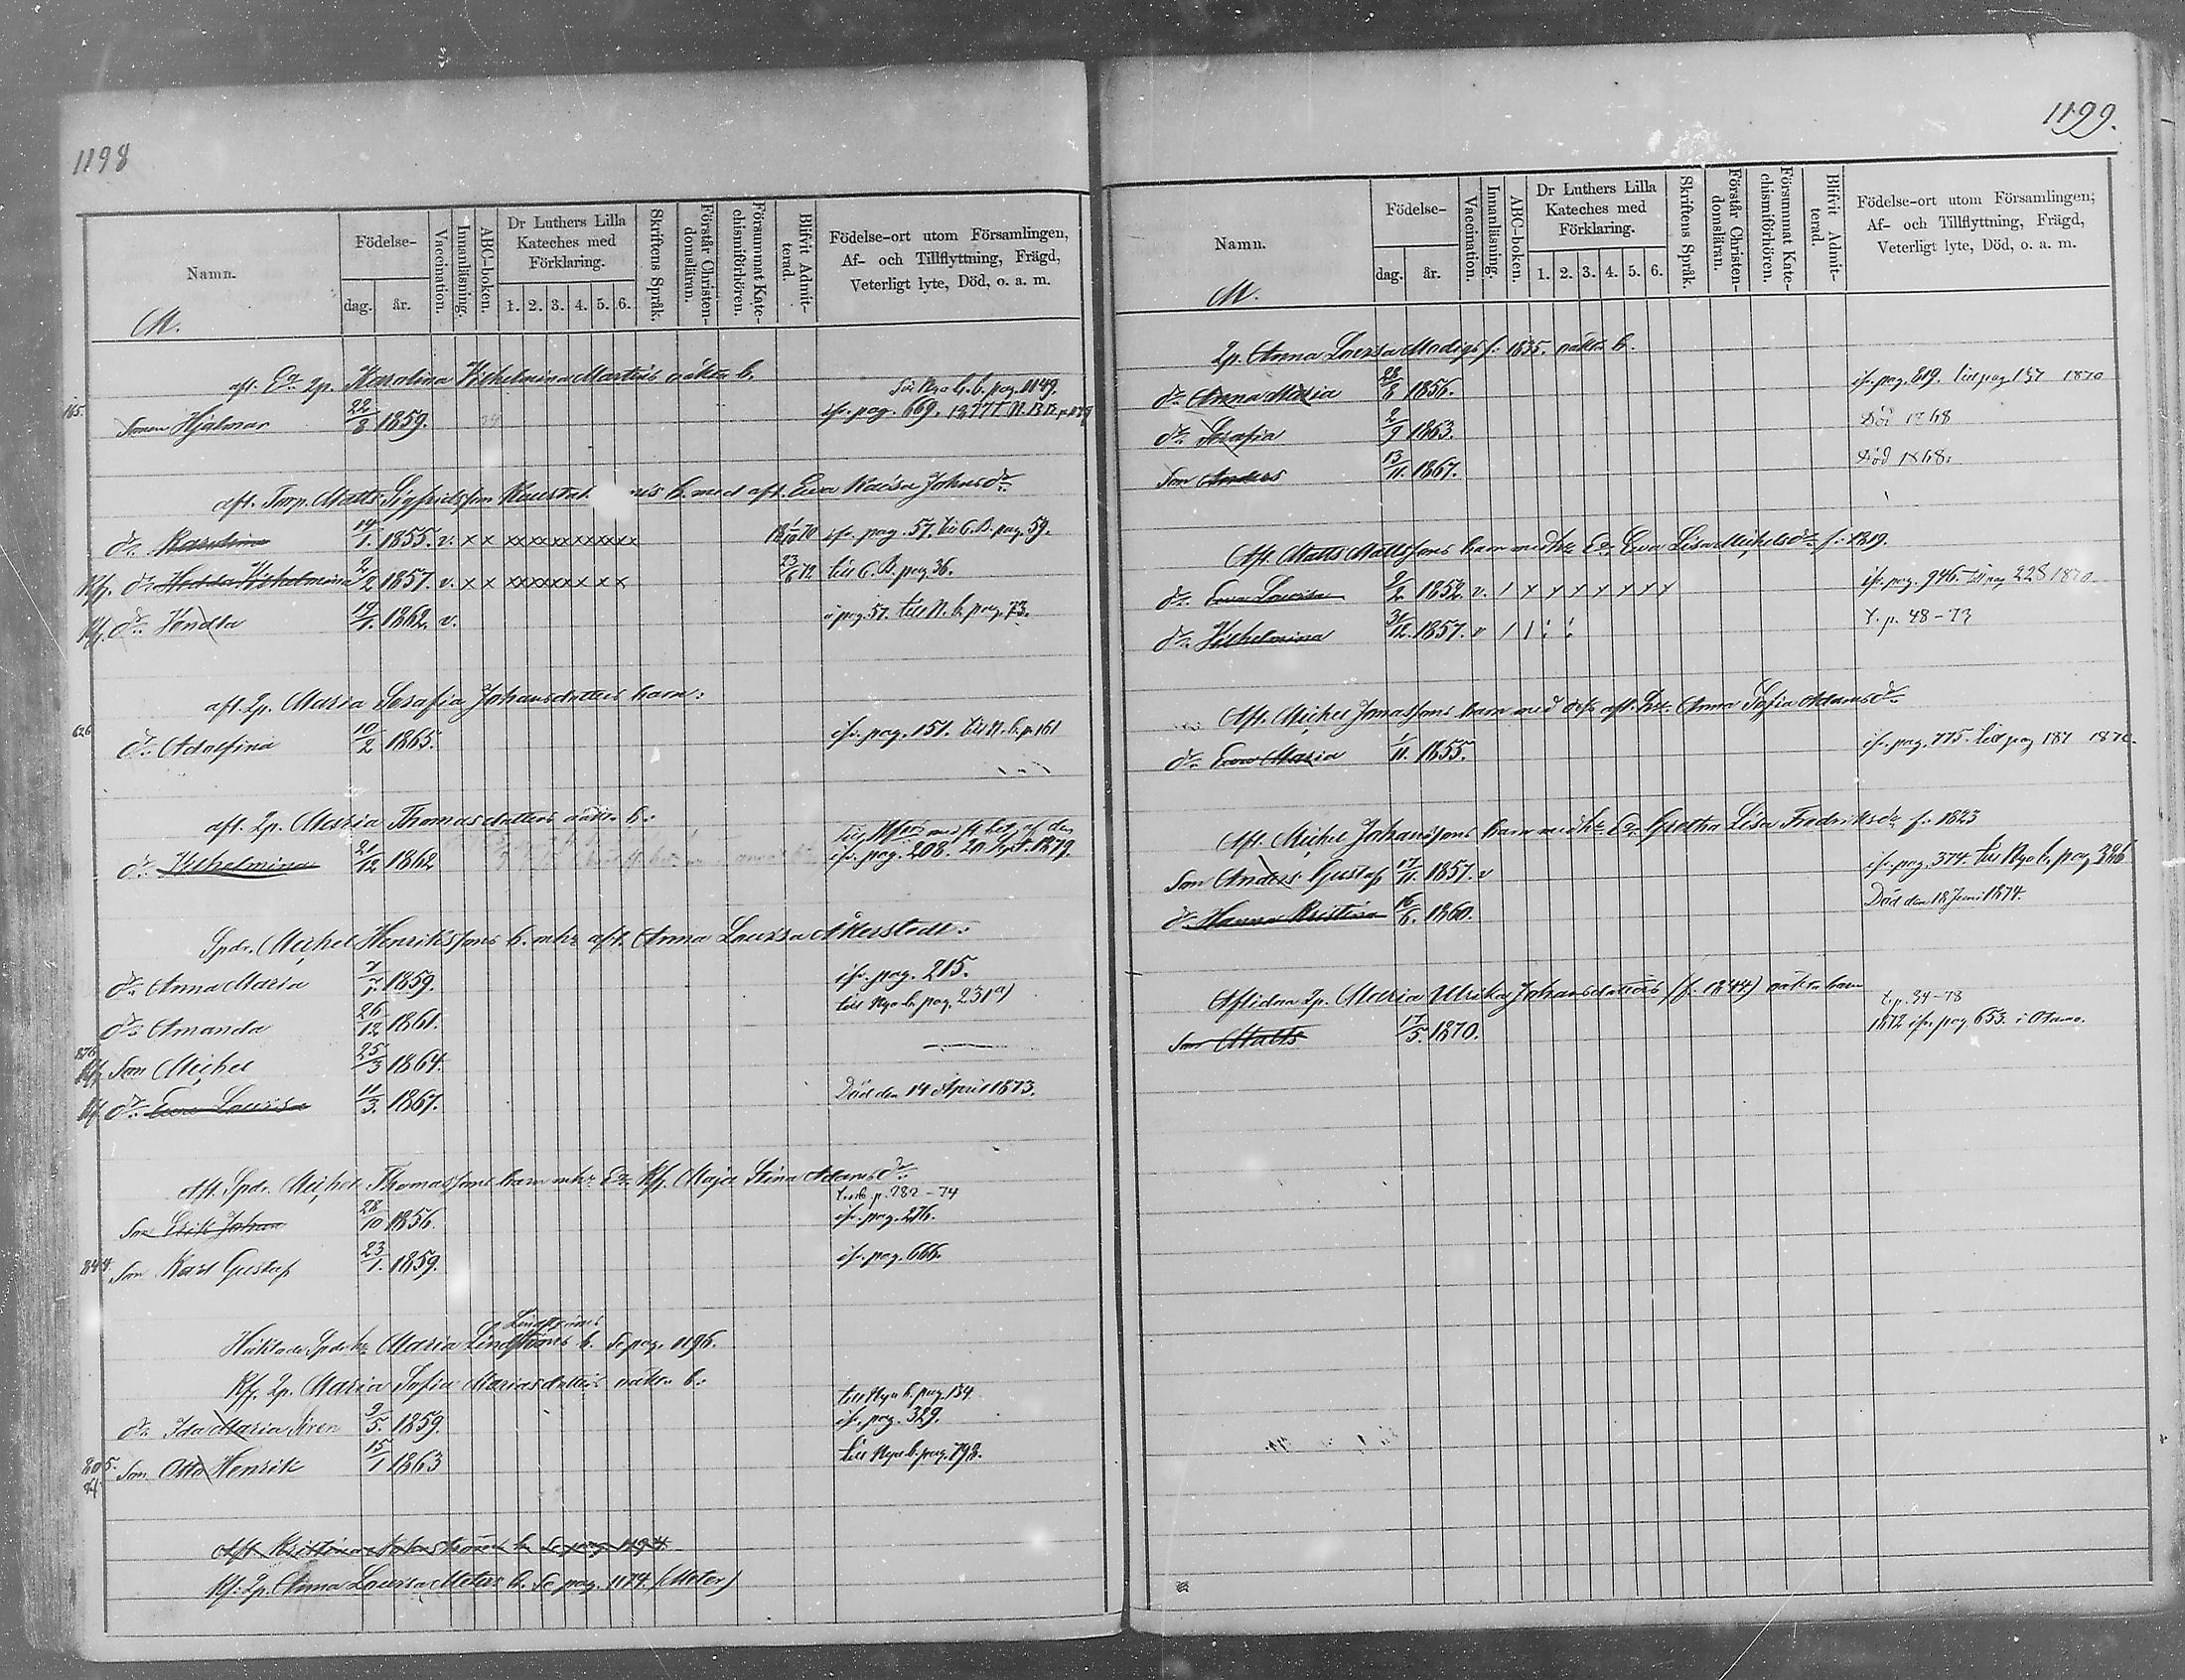 1198
Namn.
Födelse-
dag.
år.
Vaccination.
Innanläsning.
ABC-boken.
Dr Luthers Lilla
Kateches med
Förklaring.
1. 2. 3. 4. 5. 6.
Skriftens Språk.
Förstår Christen-
domsläran.
Försummat Kate-
chismiförhören.
Blifvit Admit-
terad.
Födelse-ort utom Församlingen,
Af- och Tillflyttning, Frägd,
Veterligt lyte, Död, o. a. m.
M.
aft. Ea 2p. Karolina Wilhelmina Martins oäkta b.
till Nya b. b. pag. 1149.
165. Sonen Hjalmar 22/8 1859. ifr. pag. 669.
aft. Torp. Matts Sigfridsson b. med aft. Eva Kaisa Johansdr.
dr. Karolina 14/1. 1855. v. x x x x x x x x x x x x x ifr. pag. 57. till C. B. pag. 59.
dr. Hedda Wilhelmina 2/2 1857. v. x x x x x x x x x x x 23/6 72 till C. B. pag. 36.
dr. Vendla 19/1. 1862. v. pag. 57. till N. b. pag. 73.
aft. 2p. Maria Serafia Johansdotters barn:
626 dr. Adolfina 10/2 1865. ifr. pag. 151. till N. b. p. 161
aft. 2p. Maria Thomasdotters oäkta b.:
dr. Wilhelmina 21/12 1862 ifr. pag. 208. 20 Sept. 1879.
Spdr. Michel Henrikssons b. m hr aft. Anna Lovisa Åkerstedt:
dr. Anna Maria 7/1. 1859. ifr. pag. 215.
till Nya b. pag. 231 a)
dr. Amanda 26/12 1861.
876 Son Michel 25/3 1864.
dr. Eva Lovisa 11/3. 1867. Död den 14 April 1873.
Aft. Spdr. Michel Thomassons barn m hr Ea Kf. Maja Stina Adamsdr.
p. 282 - 74
Son Erik Johan 28/10 1856. ifr. pag. 276.
844. Son Karl Gustaf 23/1. 1859. ifr. pag. 666.
Lindströms
Häktade Spdr hr Maria Lindströms b. Se pag. 1196.
Kf. 2p. Maria Sofia Mariasdotters oäkta b.:
till Nya b. pag. 134
dr. Ida Maria Siren 9/5. 1859. ifr. pag. 329.
205. Son Otto Henrik 15/1 1863 till Nya b. pag. 798.
Kf: 2p. Anna Lovisa Meters b. Se pag. 1174. (Meter)
1199.
Namn.
Födelse-
dag.
år.
Vaccination.
Innanläsning.
ABC-boken.
Dr Luthers Lilla
Kateches med
Förklaring.
1. 2. 3. 4. 5. 6.
Skriftens Språk.
Förstår Christen-
domsläran.
Försummat Kate-
chismiförhören.
Blifvit Admit-
terad.
Födelse-ort utom Församlingen;
Af- och Tillflyttning, Frägd,
Veterligt lyte, Död, o. a. m.
M.
2p. Anna Lovisa Modigs f. 1835. oäkta b.
dr. Anna Maria 28/8 1856. ifr. pag. 819. till pag 137 1870
dr. Serafia 2/9 1863. Död 1868
Son Anders 13/11. 1867. Död 1868.
Aft. Matts Mattssons barn med hr Ea Eva Lisa Michelsdr f. 1819.
dr. Eva Lovisa 9/2. 1852. v. / x x x x x x x ifr. pag. 946. till pag 228 1870
dr. Wilhelmina 31/12. 1857. v / / T. p. 48 - 73
Aft. Michel Jonassons barn med aft. Anna Sofia Adamsdr.
dr. Eva Maria 1/11. 1855. ifr. pag. 775. till pag 187
Aft. Michel Johanssons barn med hr Ea Gretha Lisa Fredriksdr f. 1823
Son Anders Gustaf 17/11. 1857. v ifr. pag. 374. till Nya b. pag 386
dr. Hanna Kristina 16/6. 1860. Död den 18 Juni 1874.
Aflidna 2p. Maria Ulrika Johansdotters (f. 1844) oäkta barn
T. p. 34 - 78
Son Matts 17/5. 1870. 1872 ifr. pag 653.